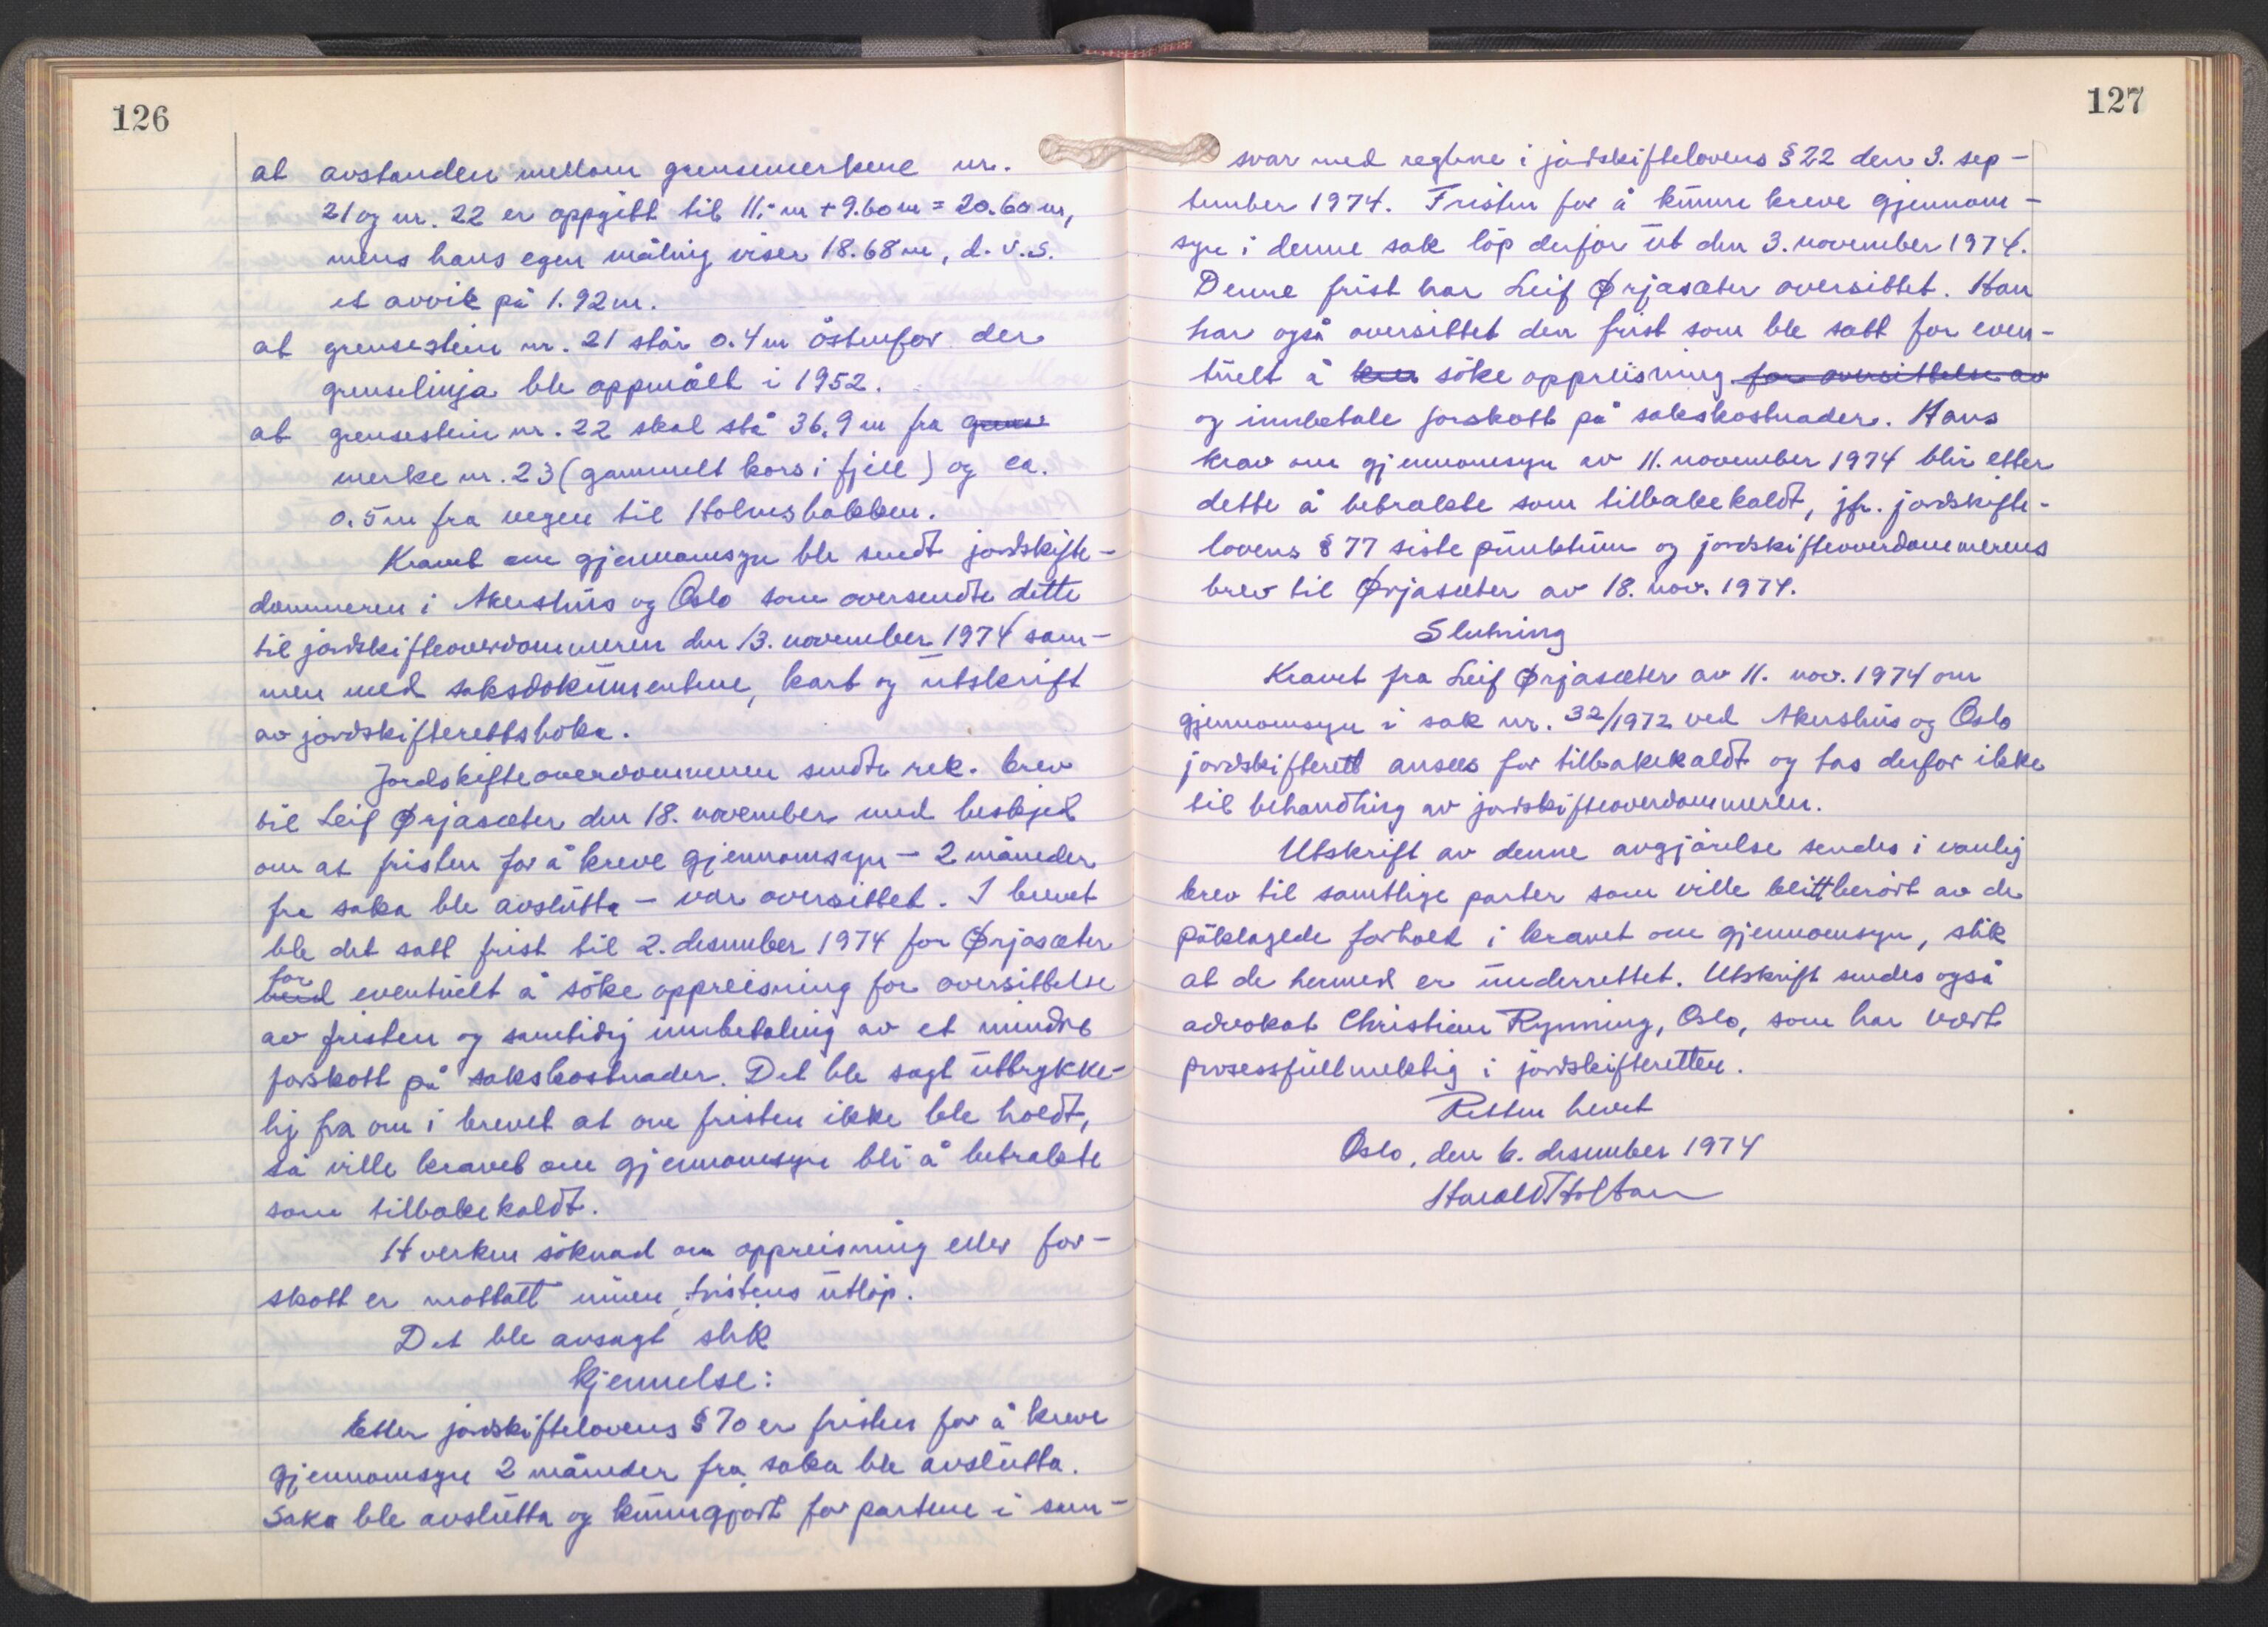 126
at avstanden mellom grensemerkene nr.
21 og nr. 22 er oppgitt til 11,- m + 9.60 m = 20.60 m,
mens hans egen måling viser 18.68 m, d.v.s.
et avvik på 1.92 m.
at grensestein nr. 21 står 0.4 m östenfor der
grenselinja ble oppmålt i 1952.
at grensestein nr. 22 skal stå 36.9 m fra grense
merke nr. 23 (gammelt kors i fjell) og ca.
0.5 m fra vegen til Holmsbakken.
Kravet om gjennomsyn ble sendt jordskifte-
dommeren i Akershus og Oslo som oversendte dette
til jordskifteoverdommeren den 13. november 1974 sam-
men med saksdokumentene, kart og utskrift
av jordskifterettsboka.
Jordskifteoverdommeren sendte rek. brev
til Leif Ørjasæter den 18. november med beskjed
om at fristen for å kreve gjennomsyn - 2 måneder
fra saka ble avslutta - var oversittet. I brevet
ble det satt frist til 2. desember 1974 for Ørjasæter
for
med eventuelt å söke oppreisning for oversittelse
av fristen og samtidig innbetaling av et mindre
forskott på sakskostnader. Det ble sagt uttrykke-
lig fra om i brevet at om fristen ikke ble holdt,
så ville kravet om gjennomsyn bli å betrakte
som tilbakekaldt.
Hverken söknad om oppreisning eller for-
skott er mottatt innen fristens utlöp.
Det ble avsagt slik
kjennelse:
Etter jordskiftelovens § 70 er fristen for å kreve
gjennomsyn 2 måneder fra saka ble avslutta.
Saka ble avslutta og kunngjort for partene i sam-
127
svar med reglene i jordskiftelovens § 22 den 3. sep-
tember 1974. Fristen for å kunne kreve gjennom-
syn i denne sak löp derfor ut den 3. november 1974.
Denne frist har Leif Ørjasæter oversittet. Han
har også oversittet den frist som ble satt for even-
tuelt å krev söke oppreisning for oversittelse av
og innbetale forskott på sakskostnader. Hans
krav om gjennomsyn av 11. november 1974 blir etter
dette å betrakte som tilbakekaldt, jfr. jordskifte-
lovens § 77 siste punktum og jordskifteoverdommerens
brev til Ørjasæter av 18. nov. 1974.
Slutning
Kravet fra Leif Ørjasæter av 11. nov. 1974 om
gjennomsyn i sak nr. 32/1972 ved Akershus og Oslo
jordskifterett ansees for tilbakekaldt og tas derfor ikke
til behandling av jordskifteoverdommeren.
Utskrift av denne avgjörelse sendes i vanlig
brev til samtlige parter som ville blitt berört av de
påklagede forhold i kravet om gjennomsyn, slik
at de hermed er underrettet. Utskrift sendes også
advokat Christian Rynning, Oslo, som har vært
prosessfullmektig i jordskifteretten.
Retten hevet
Oslo, den 6. desember 1974
Harald Holtan